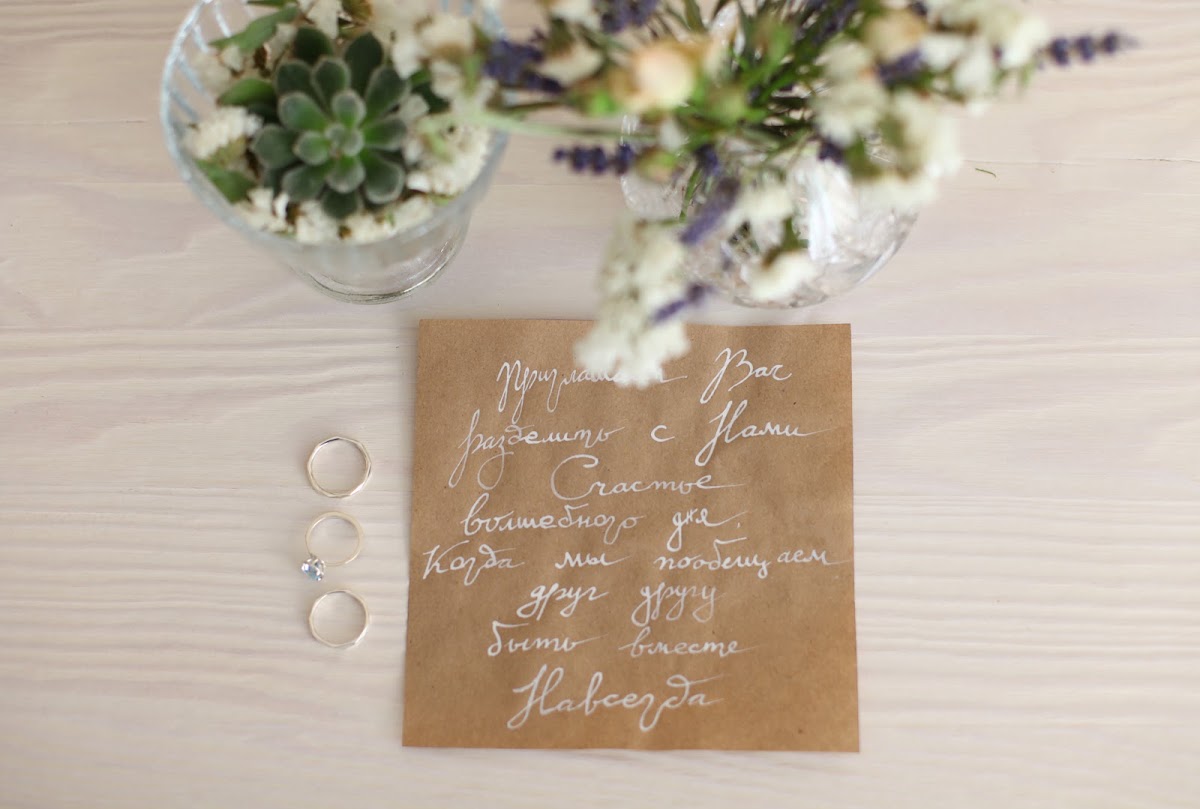 Приглашаем Вас
разделить с Нами
Счастье
волшебного дня.
Когда мы пообещаем
друг другу
быть вместе
Навсегда